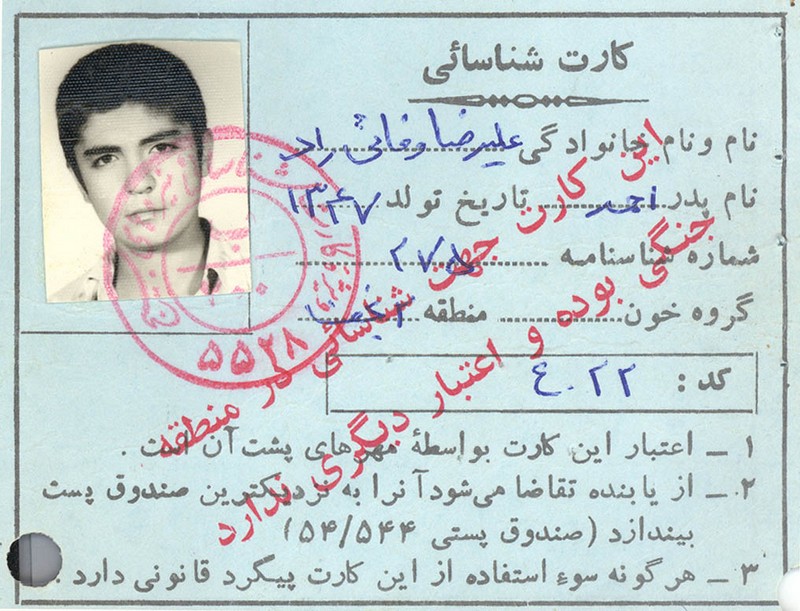 کارت شناسائی
نام و نام خانوادگی علیرضا وفائی راد
نام پدر احمد تاریخ تولد ۱۳۴۷
شماره شناسنامه
گروه خون منطقه
کد : ۲۲ ۴۰
۱ ـ اعتبار این کارت بواسطهٔ مهرهای پشت آن است .
۲ ـ از یابنده تقاضا می‌شود آنرا به نزدیکترین صندوق پست
بیندازد (صندوق پستی ۵۴/۵۴۴)
۳ ـ هرگونه سوء استفاده از این کارت پیگرد قانونی دارد .
این کارت جهت شناسائی در منطقه
جنگی بوده و اعتبار دیگری ندارد
۵۵۲۸